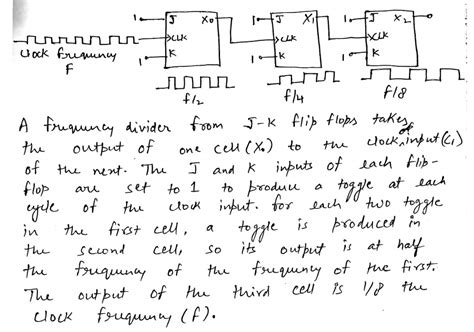 1 J X₀ 1 J X₁ 1 J X₂
>CLK >CLK >CLK
Clock frequency
F
1 K 1 K 1 K
f/2 f/4 f/8
A frequency divider from J-K flip flops takes
the output of one cell (X₀) to the clock of input (C₁)
of the next. The J and K inputs of each flip-
flop are set to 1 to produce a toggle at each
cycle of the clock input. For each two toggle
in the first cell, a toggle is produced in
the second cell, so its output is at half
the frequency of the frequency of the first.
The output of the third cell is 1/8 the
clock frequency (f).